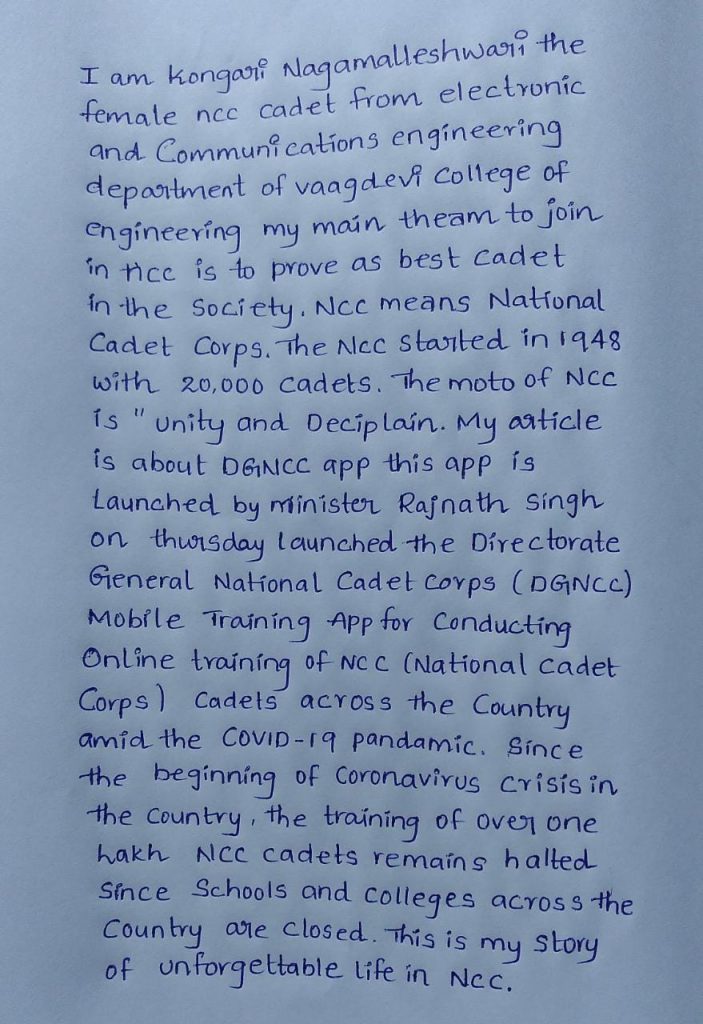 I am Kongari Nagamalleshwari the
female ncc cadet from electronic
and Communications engineering
department of vaagdevi college of
engineering my main theam to join
in ncc is to prove as best cadet
in the Society. NCC means National
Cadet Corps. The NCC started in 1948
with 20,000 cadets. The moto of NCC
is " unity and Deciplain. My article
is about DGNCC app this app is
Launched by minister Rajnath singh
on thursday launched the Directorate
General National Cadet Corps (DGNCC)
Mobile Training App for Conducting
Online training of NCC (National cadet
Corps) Cadets across the Country
amid the COVID-19 pandamic. Since
the beginning of Coronavirus crisis in
the country, the training of over one
hakh NCC cadets remains halted
Since Schools and colleges across the
Country are closed. This is my story
of unforgettable life in NCC.